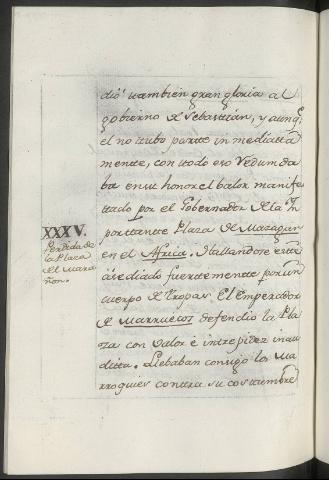 dió tambien gran gloria al
gobierno de Sebastián, y aunq.e
el no tubo parte inmediatta
mente, con todo eso redunda
ba en su honor el balor manifes
tado por el Gobernador de la Ym
porttante Plaza de Mazagan
en el Africa. Hallandose estta
asediado fuertemente por un
cuerpo de tropas El Emperador
de Marruecos defendio la Pla
za con valor é intrepidez inau
ditta. Llebaban consigo los Ma
rroquies contra su costumbre
XXXV.
Perdida de
la Plaza
del Mara
ñon.